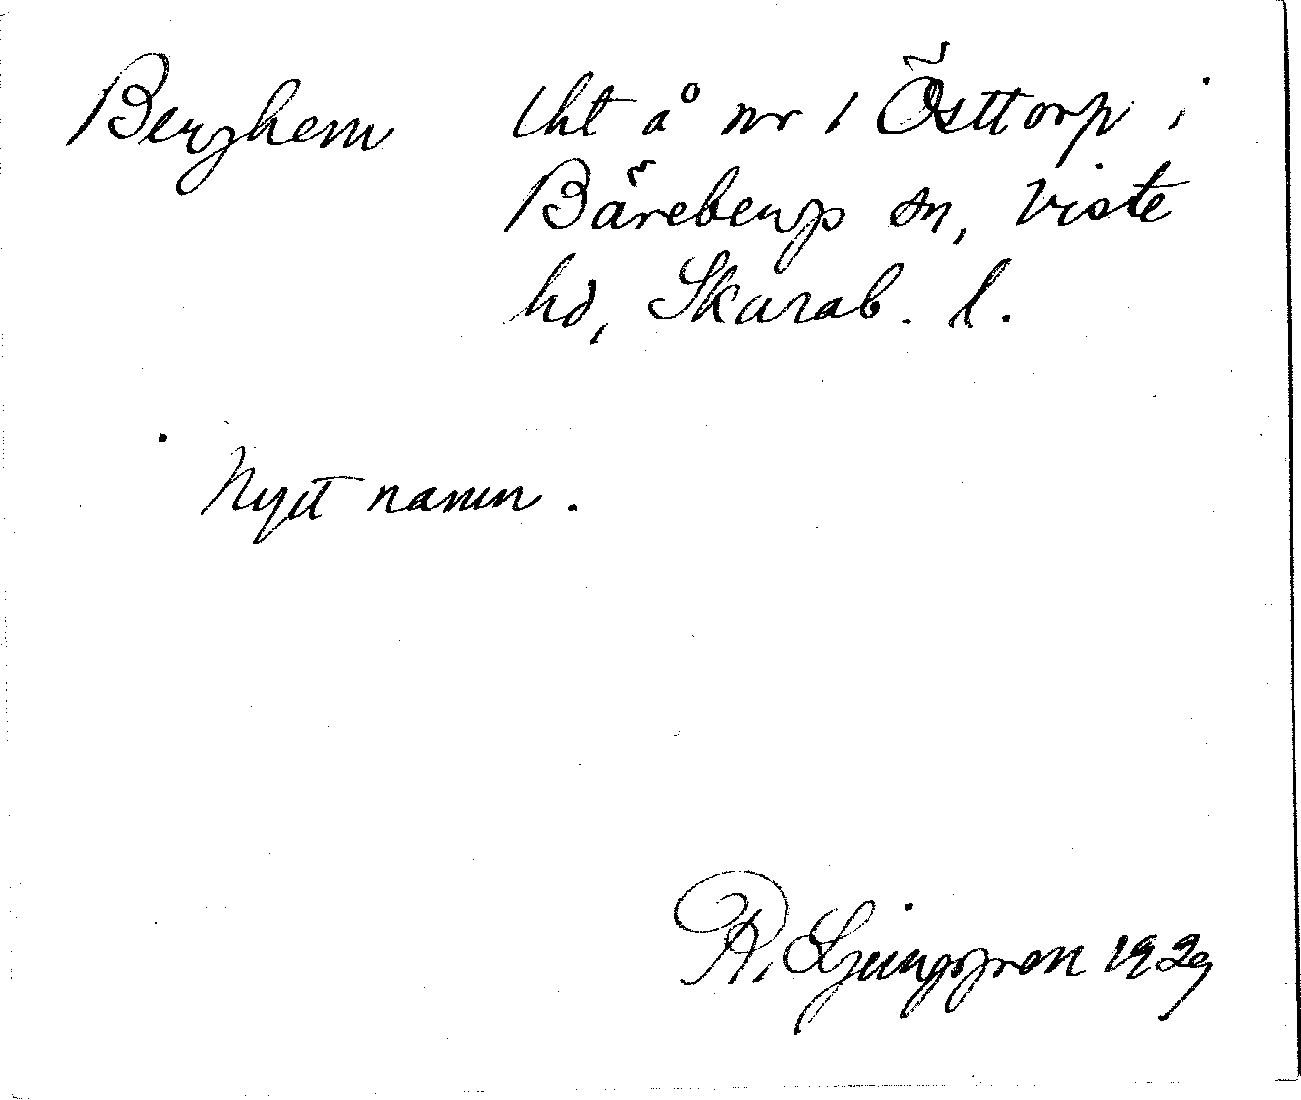 Berghem lht å nr 1 Östtorp i
Bäreberg sn, Viste
hd, Skarab. l.
Nytt namn.
R. Ljunggren 1929